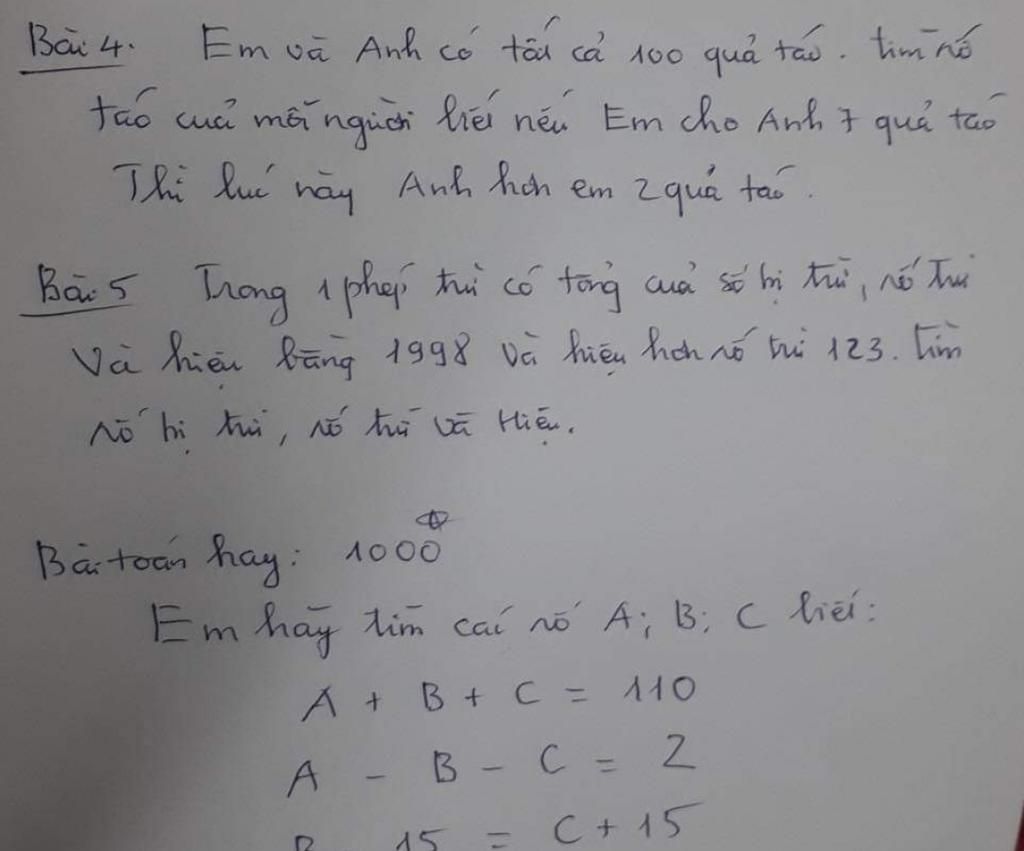 Bài 4. Em và Anh có tất cả 100 quả táo. tìm số
táo của mỗi người biết nếu Em cho Anh 7 quả táo
Thì lúc này Anh hơn em 2 quả táo.
Bài 5 Trong 1 phép trừ có tổng của số bị trừ, số trừ
Và hiệu bằng 1998 và hiệu hơn số trừ 123. Tìm
số bị trừ, số trừ và Hiệu.
Bài toán hay: 1000
Em hãy tìm các số A; B; C biết:
A + B + C = 110
A - B - C = 2
B 15 = C + 15